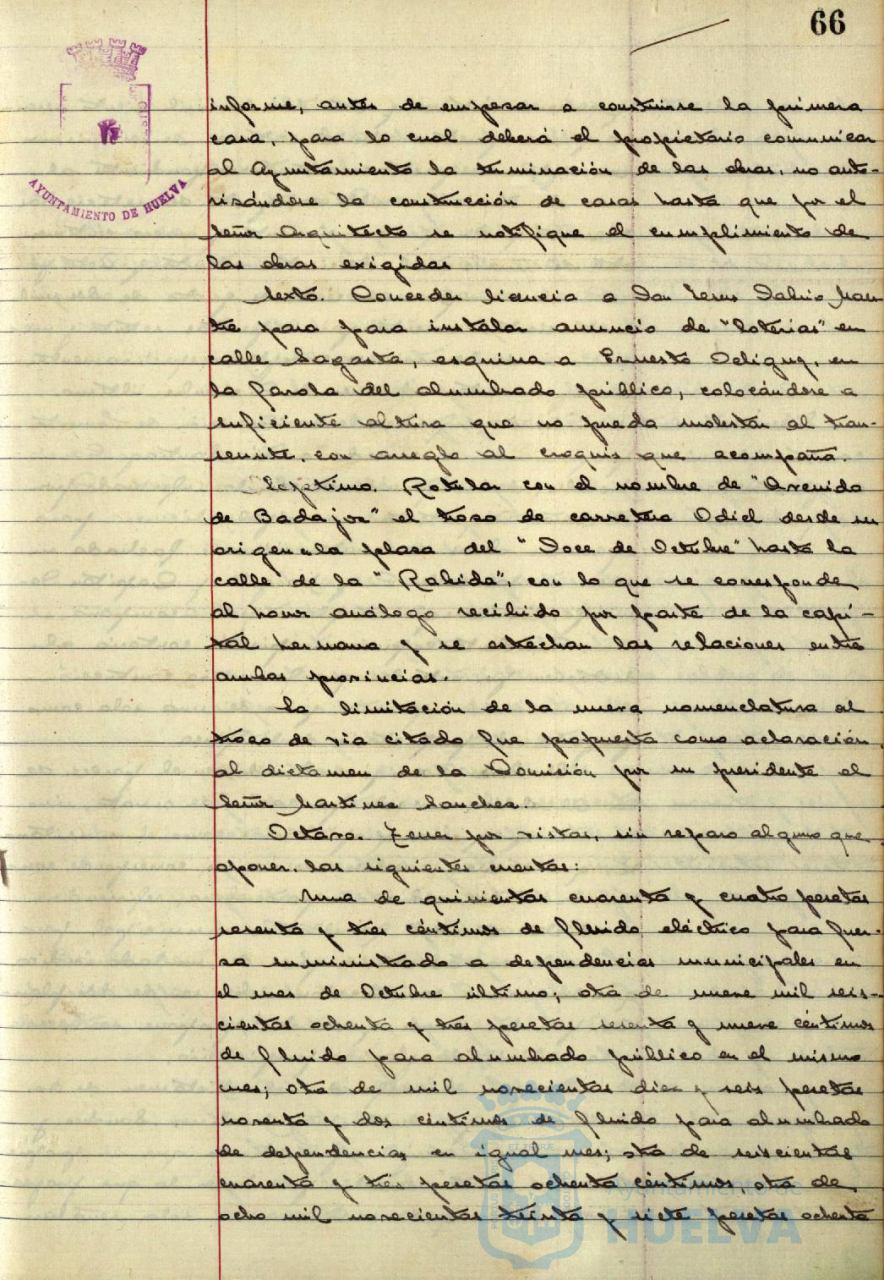 66
AYUNTAMIENTO DE HUELVA
informe, antes de empezar a construirse la primera
casa, para lo cual deberá el propietario comunicar
al Ayuntamiento la terminación de las obras, no auto-
rizándose la construcción de casas hasta que por el
Señor Arquitecto se notifique el cumplimiento de
las obras exigidas
Sexto. Conceder licencia a Don
para para instalar anuncio de "Loterias" en
calle Sagasta, esquina a Ernesto Deligny, en
la farola del alumbrado público, colocándose a
suficiente altura que no pueda molestar al tran-
seunte, con arreglo al croquis que acompaña.
Septimo. Rotular con el nombre de "Avenida
de Badajoz" el trozo de carretera Odiel desde su
origen en la plaza del "Doce de Octubre" hasta la
calle de la "Rabida", con lo que se corresponde
al honor análogo recibido por parte de la capi-
tal hermana y se estechan las relaciones entre
ambas provincias.
La limitación de la nueva nomenclatura al
trozo de via citado fue propuesta como aclaración
al dictamen de la Comisión por su presidente el
Señor Martinez Sanchez.
Octavo. Tener por vistas, sin reparo alguno que
oponer, las siguientes cuentas:
Una de quinientas cuarenta y cuatro pesetas
sesenta y tres céntimos de fluido eléctrico para fuer-
za suministrado a dependencias municipales en
el mes de Octubre último; otra de nueve mil seis-
cientas ochenta y tres pesetas sesenta y nueve céntimos
de fluido para alumbrado público en el mismo
mes; otra de mil novecientas diez y seis pesetas
noventa y dos céntimos de fluido para alumbrado
de dependencias en igual mes; otra de seiscientas
cuarenta y tres pesetas ochenta céntimos, otra de
ocho mil novecientas treinta y siete pesetas ochenta
Ayuntamiento de
HUELVA